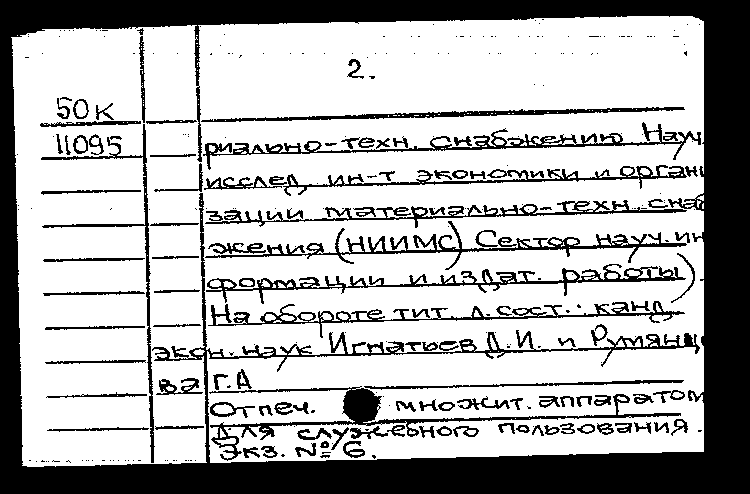 2.
50к
11095
риально-техн. снабжению Науч.
исслед. ин-т экономики и органи
зации материально-техн. снаб
жения (НИИМС) Сектор науч. ин
формации и издат. работы).
На обороте тит. л. сост.: канд.
экон. наук Игнатьев Д.И. и Румянце
ва Г.А
Отпеч. множит. аппаратом
Для служебного пользования.
Экз. № 6.